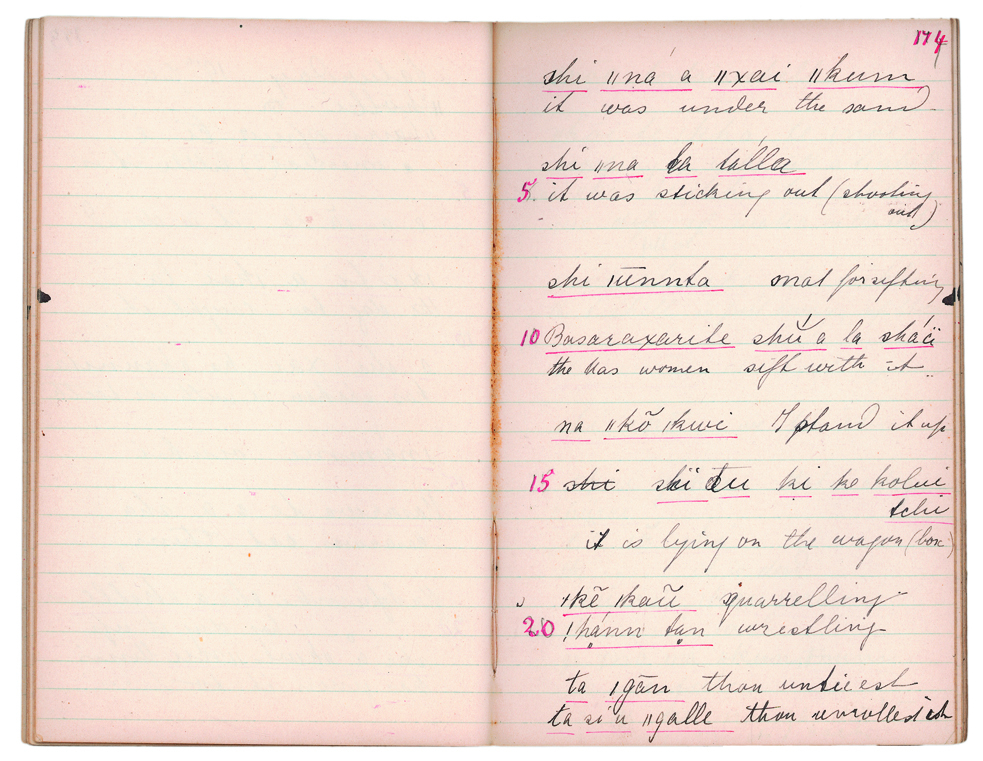 174
shi ǁna á ǁxai ǁkum
it was under the sand
shi ǁna ta tálla
5. it was sticking out (shooting
out)
shi ǀūnnta mat for sifting
10 Basaraxarite shŭ a la sháĭ
the Mas women sift with it
na ǁkõ ǀkwi I stand it up
15 shi shi tu ki ke kolui
tchu
it is lying on the wagon (box)
ǀkē ǀkaũ quarrelling
20 !hánn tạn wrestling
ta ǀgān thou untiest
ta si u ǁgalle thou unrollest it